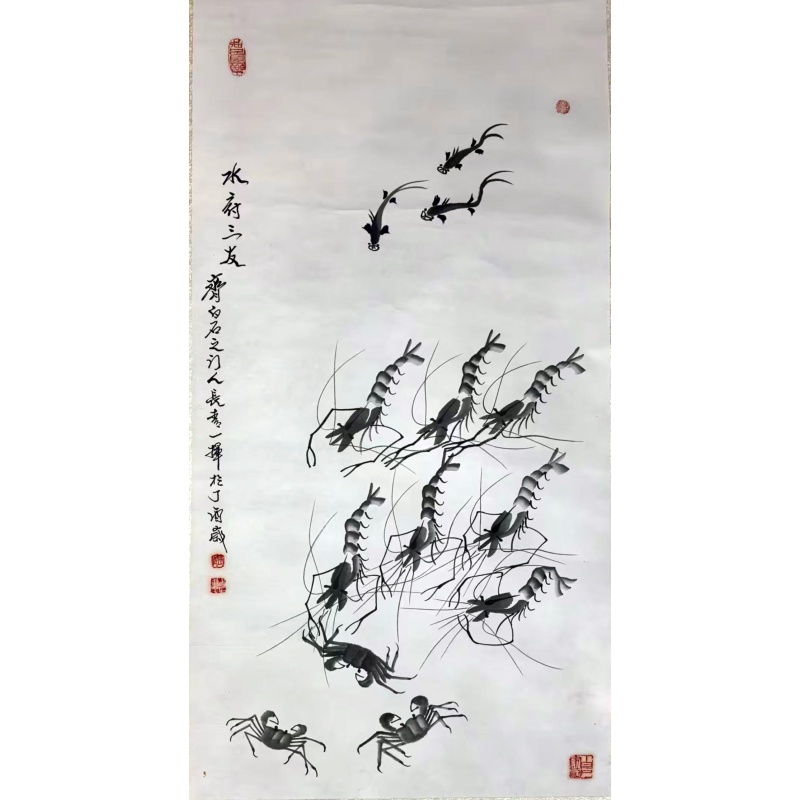 水府三友
齊白石之门人長青一揮於丁酉歲